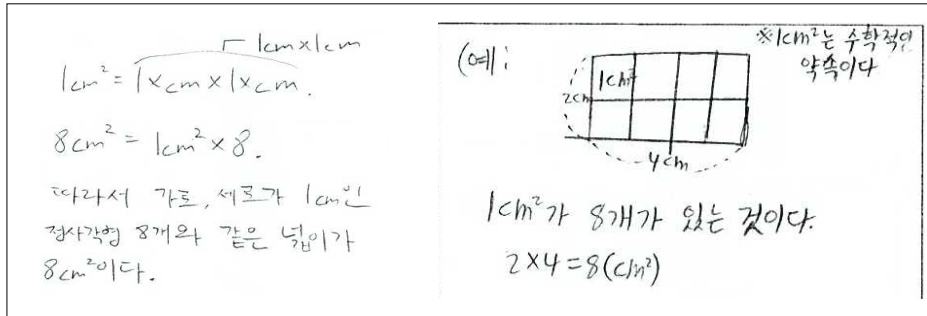 1cm×1cm
1cm² = 1×cm×1×cm.
8cm² = 1cm²×8.
따라서 가로, 세로가 1cm인
정사각형 8개와 같은 넓이가
8cm²이다.
※1cm²는 수학적인
약속이다
(예:
1cm²
2cm
4cm
1cm²가 8개가 있는 것이다.
2×4=8(cm²)